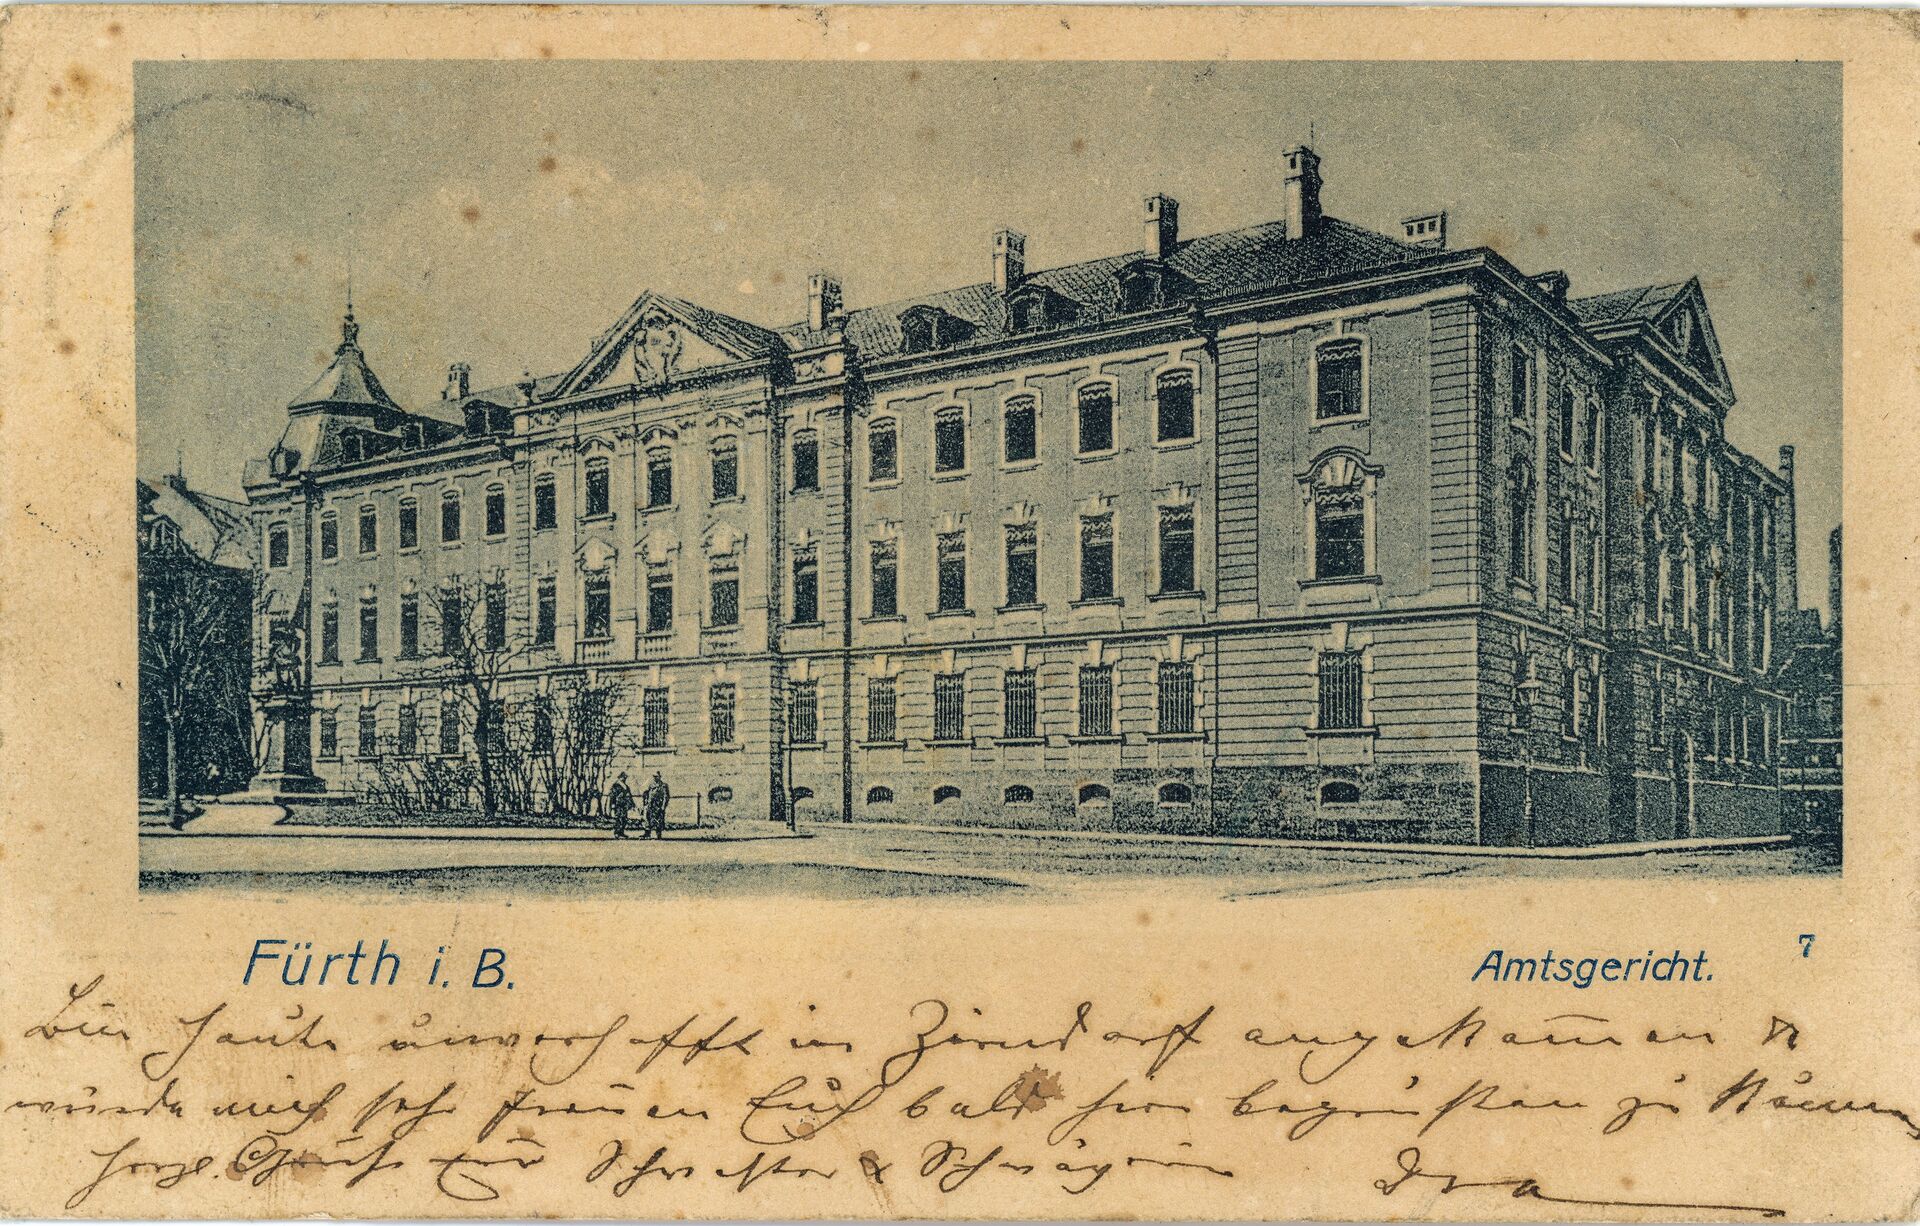 Fürth i. B.
Amtsgericht. 7
Bin heute unverhofft in Zirndorf angekom̅en &
würde mich sehr freuen Euch bald hier begrüßen zu
herzl. Grüße Schwester & Schwägerin